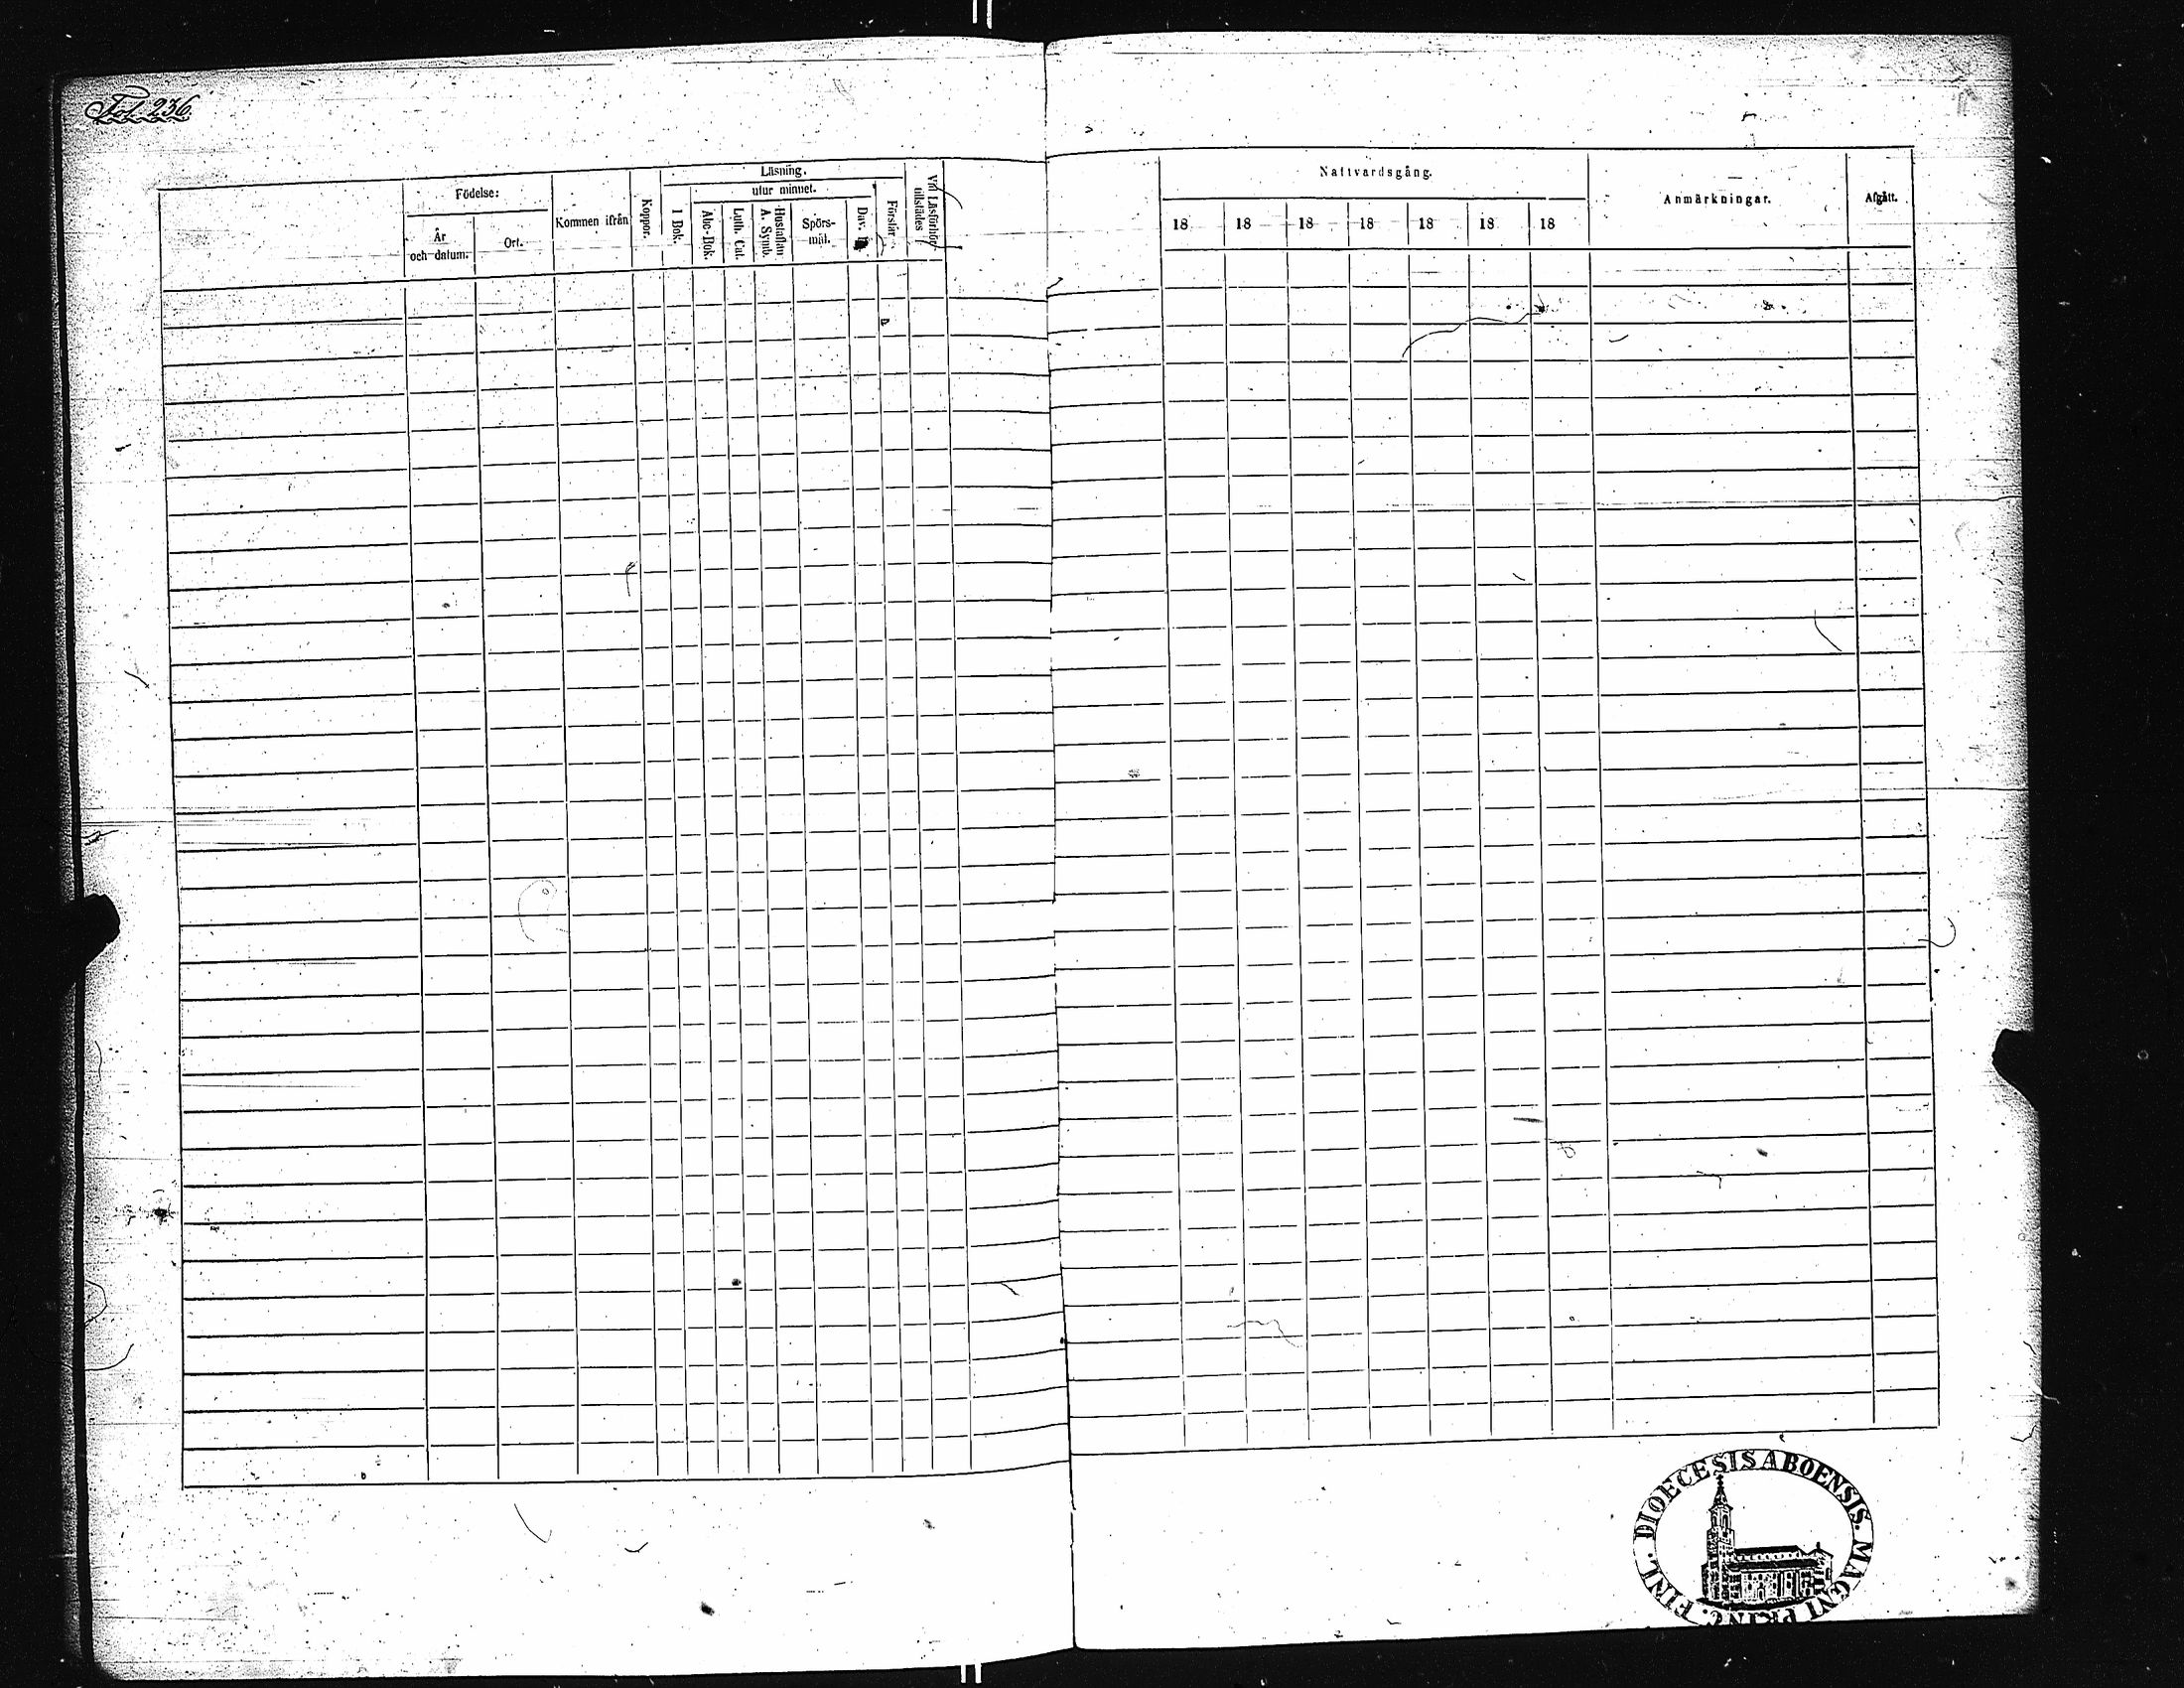 Fol. 236.
Födelse:
År och datum.
Ort.
Kommen ifrån
Koppor.
Läsning.
I Bok.
utur minnet.
Abc-Bok.
Luth. Cat.
Hustaflan A. Symb.
Spörs-mål.
Dav.
Förstår
Vid Läsförhör tillstädes
Nattvardsgång.
18 18 18 18 18 18 18
Anmärkningar.
Afgått.
DIOECESIS ABOENSIS. MAGNI PRINC. FINL.